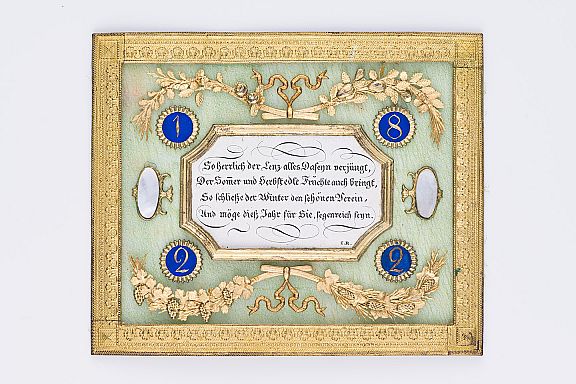 1 8
So herrlich der Lenz alles Daseyn verjüngt,
Der Som̅er und Herbst edle Früchte auch bringt,
So schließe der Winter den schönen Verein,
Und möge dieß Jahr für Sie, segenreich seyn.
2 2